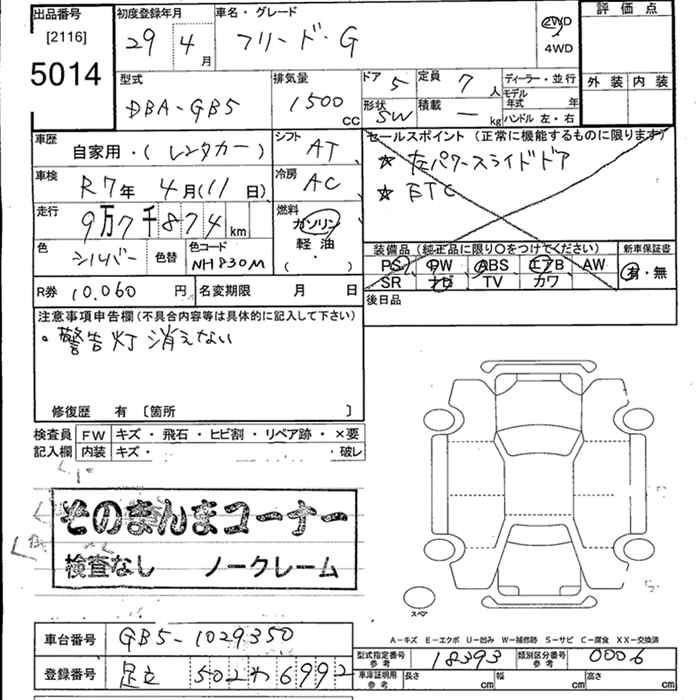 出品番号
[2116]
5014
初度登録年月
29 4月
車名・グレード
フリード・G
2WD
4WD
評価点
外装 内装
型式
DBA-GB5
排気量
1500 cc
ドア 5
定員 7 人
形状 SW
積載 — kg
ディーラー・並行
モデル年式 年
ハンドル 左・右
車歴
自家用・(レンタカー)
シフト AT
セールスポイント (正常に機能するものに限ります)
☆ 左パワースライドドア
☆ ETC
車検
R7年 4月(11日)
冷房 AC
走行
9万7千874km
燃料
ガソリン
軽油
(・)
色 シルバー
色替
色コード NH830M
装備品 (純正品に限り○をつけてください)
PS PW ABS エアB AW
SR ナビ TV カワ
新車保証書
有・無
R券 10,060円
名変期限 月 日
後日品
注意事項申告欄 (不具合内容等は具体的に記入して下さい)
・警告灯消えない
修復歴 有 [箇所 ]
検査員 FW キズ・飛石・ヒビ割・リペア跡・×要
記入欄 内装 キズ・ ・破レ
そのまんまコーナー
検査なし ノークレーム
スペア
A-キズ E-エクボ U-凹み W-補修跡 S-サビ C-腐食 XX-交換済
車台番号 GB5-1029350
登録番号 足立 502 わ 6992
型式指定番号 参考 18393
類別区分番号 参考 0006
車庫証明用 参考 長さ cm 幅 cm 高さ cm